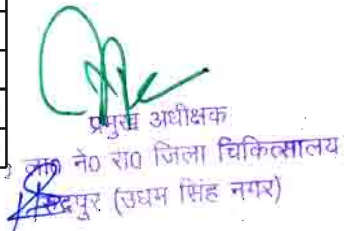 प्रमुख अधीक्षक
ने0 रा0 जिला चिकित्सालय
रूद्रपुर (उधम सिंह नगर)